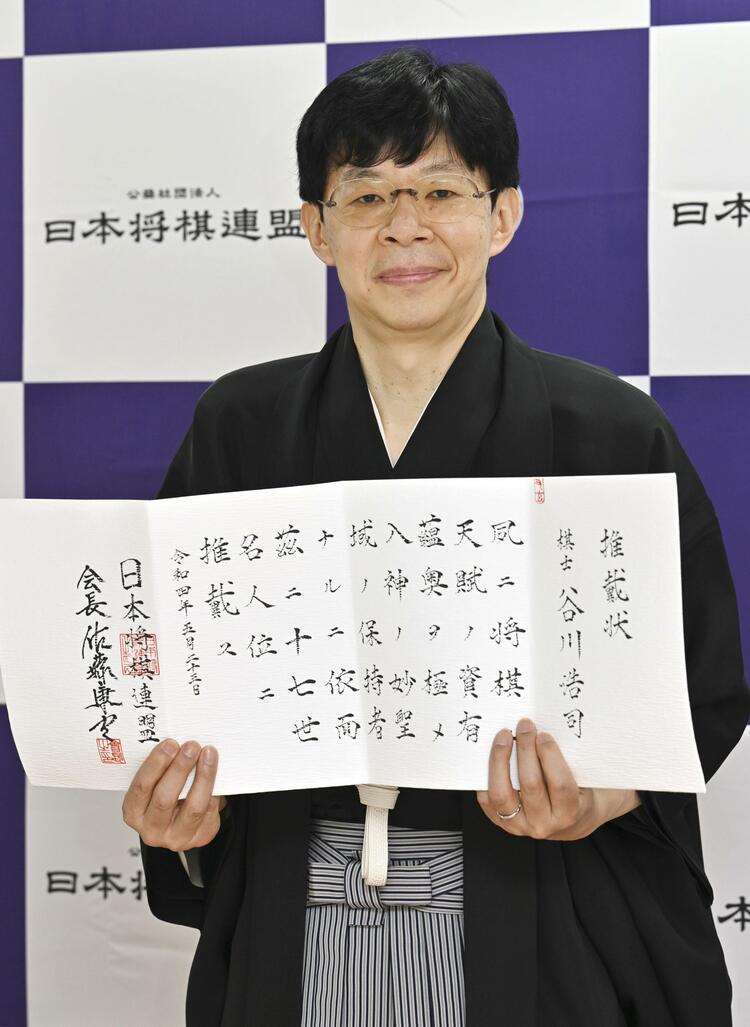 公益社団法人
日本将棋連盟
日本
推戴状
棋士 谷川浩司
夙ニ将棋
天賦ノ資有
蘊奥ヲ極メ
入神ノ妙聖
域ノ保持者
ナルニ依而
茲ニ十七世
名人位ニ
推戴ス
令和四年五月二十三日
日本将棋連盟
会長佐藤康光
日本将